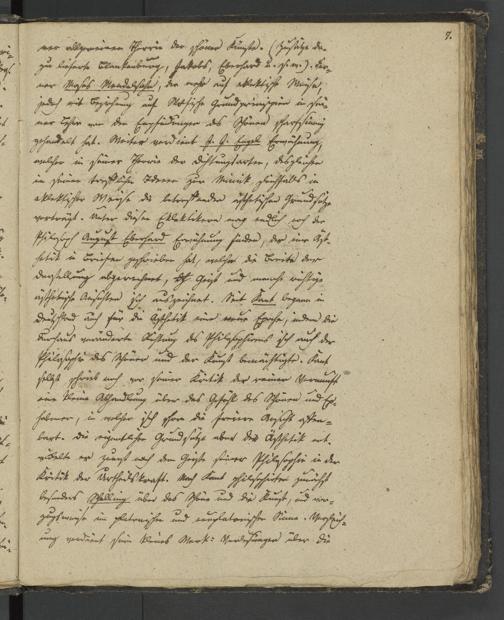 7.
ner allgemeinen Theorie der schönen Künste. (Zusätze da-
zu lieferte Blankenburg, Jakobs, Eberhard u. a. m.). Fer-
ner Moses Mendelssohn, der mehr auf eklektische Weise,
jedoch mit Beziehung auf Wolfische Grundprinzipien in sei-
ner Lehre von den Empfindungen des Schönen scharfsinnig
gehandelt hat. Weiter verdient J. J. Engel Erwähnung,
welcher in seiner Theorie der Dichtungsarten, desgleichen
in seinen trefflichen Ideen zur Mimik, gleichfalls in
eklektischer Weise die betreffenden ästhetischen Grundsätze
vorträgt. Unter diesen Eklektikern mag endlich noch der
Philosoph August Eberhard Erwähnung finden, der eine Ästh-
hetik in Briefen geschrieben hat, welche die Breite der
Darstellung abgerechnet, durch Geist und manche richtige
ästhetische Ansichten sich auszeichnet. Seit Kant begann in
Deutschland auch für die Ästhetik eine neue Epoche, indem die
durchaus veränderte Richtung des Philosophirens sich auch der
Philosophie des Schönen und der Kunst bemächtigte. Kant
selbst schrieb noch vor seiner Kritik der reinen Vernunft
eine kleine Abhandlung über das Gefühl des Schönen und Er-
habenen, in welcher sich schon die Ansicht offen-
bart. Die eigentlichen Grundsätze aber der Ästhetik ent-
wickelte er zuerst nach dem Geiste seiner Philosophie in der
Kritik der Urtheilskraft. Nach Kant philosophirte zunächst
besonders Schelling über das Schöne und die Kunst, und vor-
zugsweise im platonischen und neuplatonischen Sinne.
verdient sein kleines Werk: Vorlesungen über die